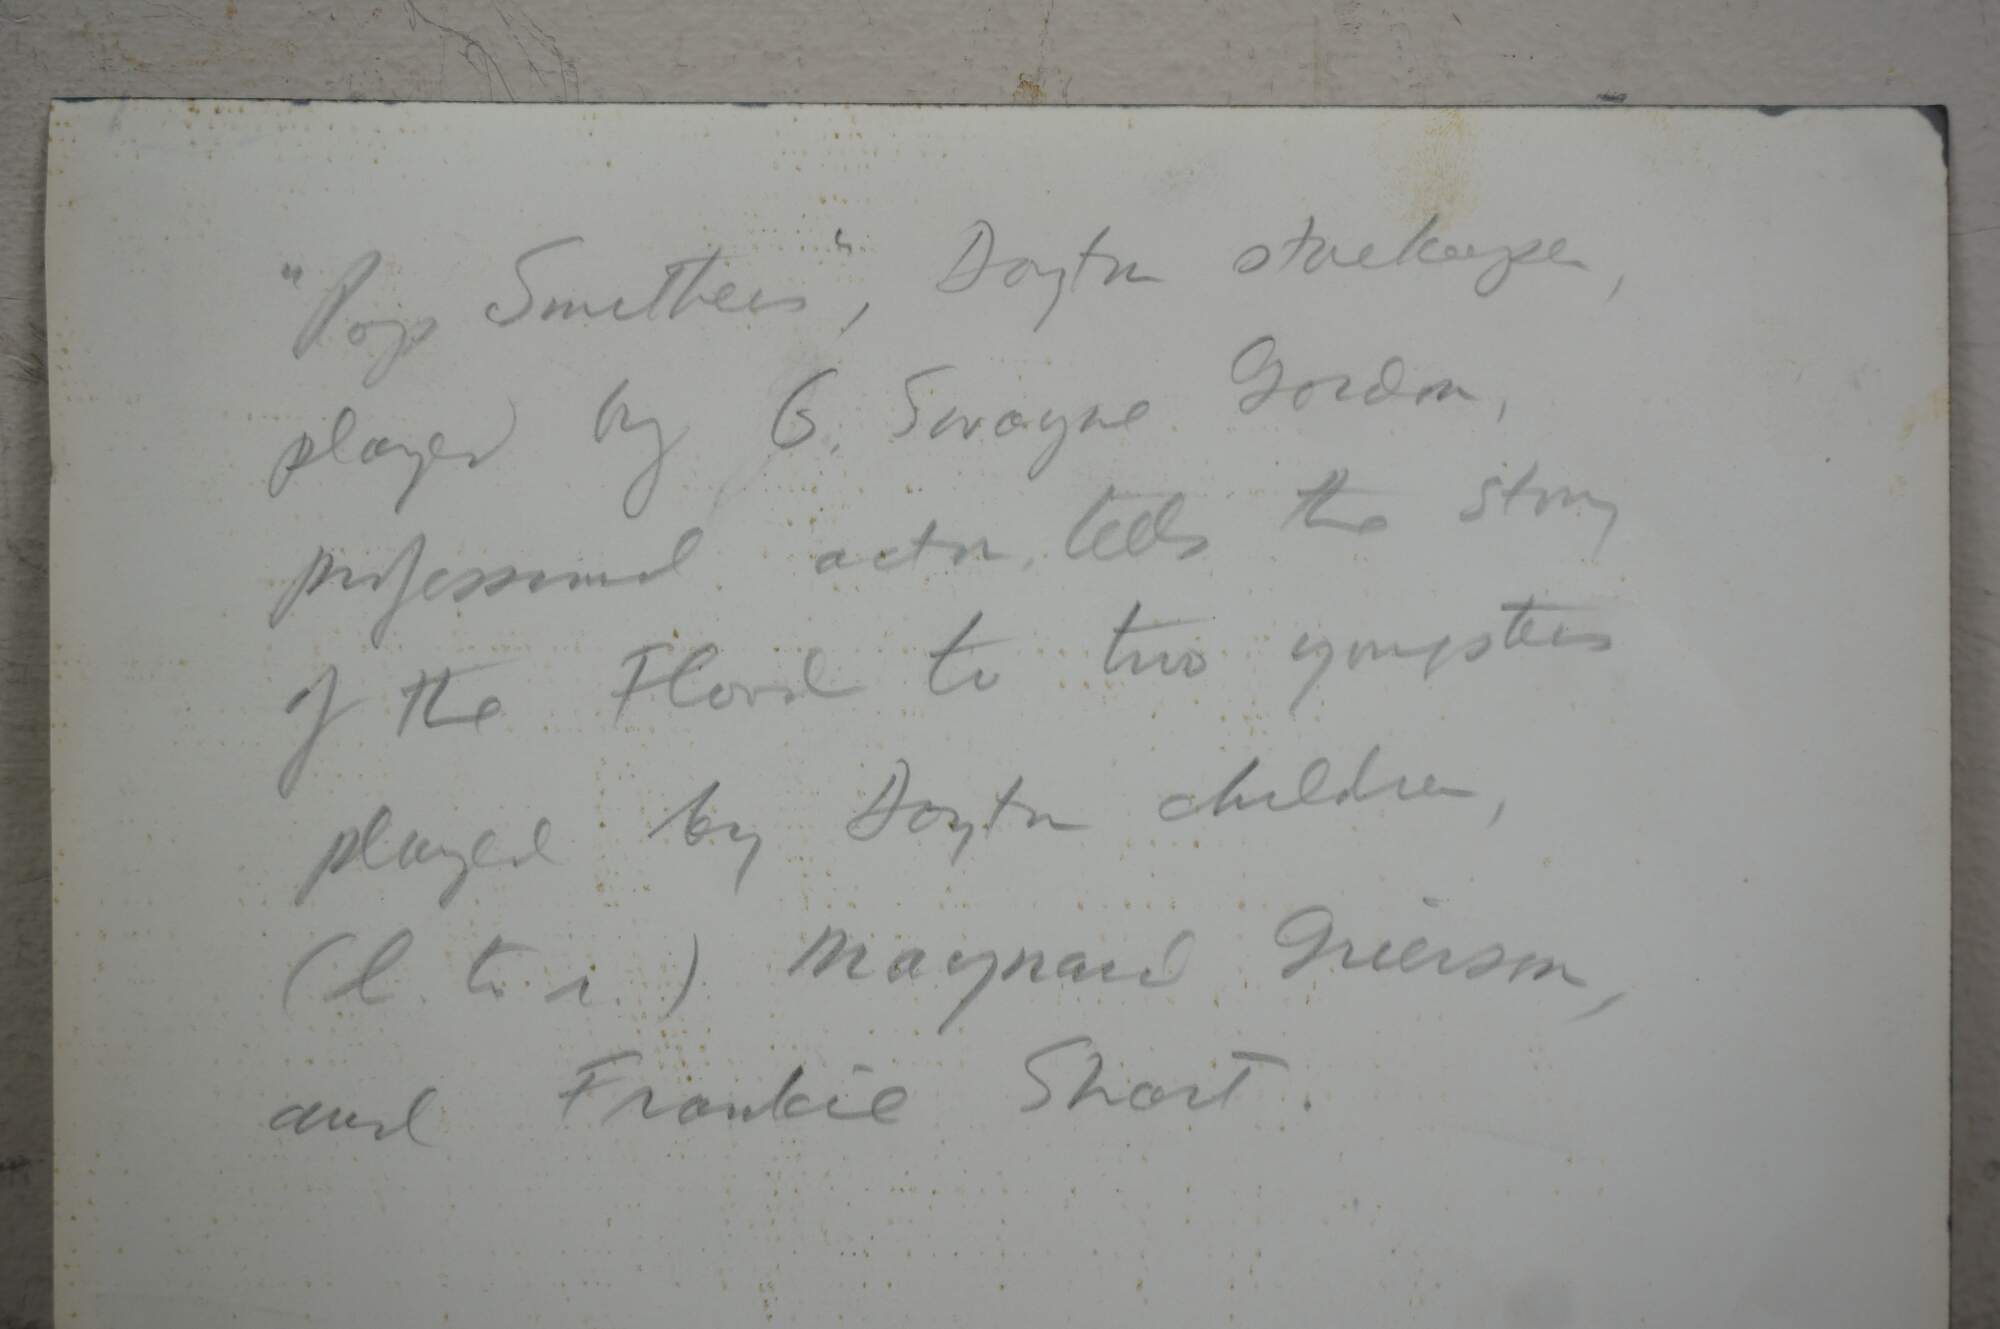 "Pop Smithers", Dayton storekeeper,
played by G. Swayne Gordon,
professional actor, tells the story
of the Flood to two youngsters
played by Dayton children,
(l. to r.) Maynard Grierson,
and Frankie Short.